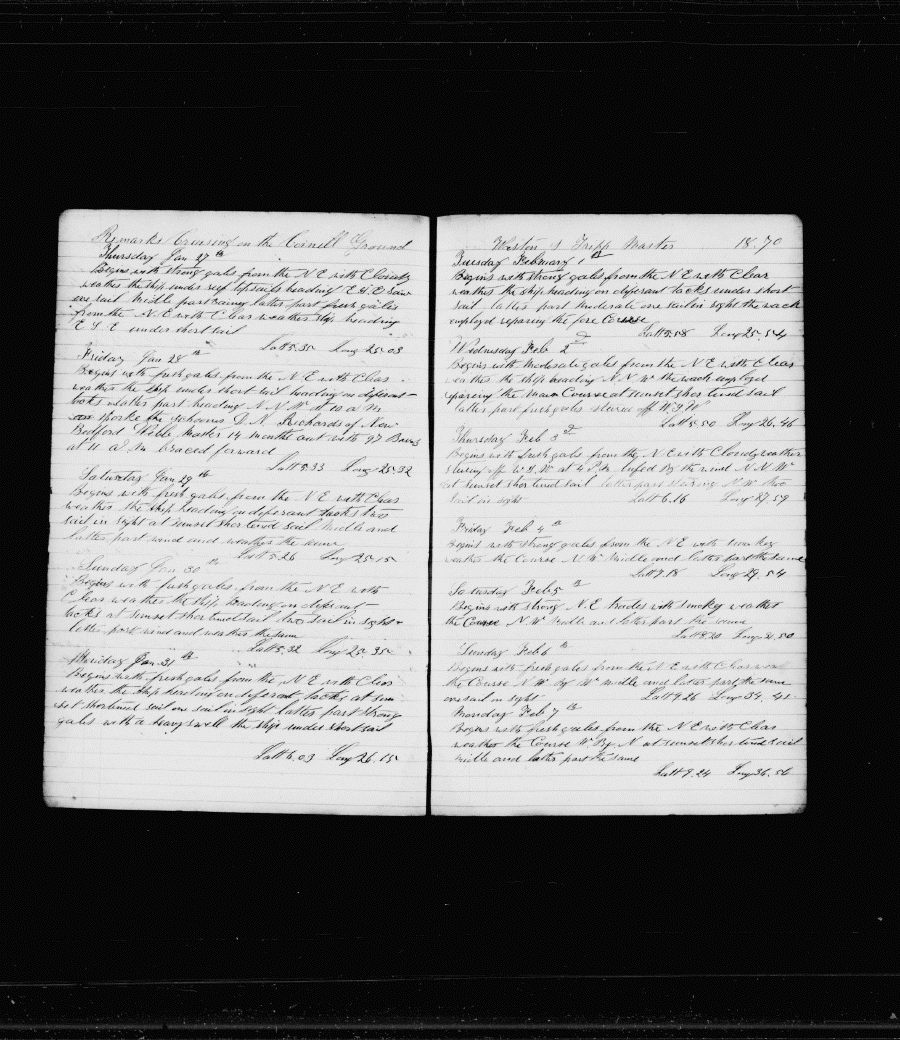 Remarks Cruising on the Cornell Ground
Thursday Jan 27th
Begins with strong gales from the N E with Cloudy
weather the ship under reef topsails heading E.S.E Saw
one sail Middle part rainy latter part fresh gales
from the N E with Clear weather ship heading
E S E under short sail
Latt 5.35 Long 25.03
Friday Jan 28th
Begins with fresh gales from the N E with Clear
weather the ship under short sail heading on diferent
tacks latter part heading N N W at 10 a m
spoke the schooner D. N. Richards of New
Bedford Master 14 months out with 97 Barrels
at 11 a m braced forward
Latt 5.33 Long 25.32
Saturday Jan 29th
Begins with fresh gales from the N E with Clear
weather the ship heading on diferant tacks two
sail in sight at sunset shortened sail Midle and
latter part wind and weather the same
Latt 5.26 Long 25.15
Sunday Jan 30th
Begins with fresh gales from the N E with
Clear weather the ship heading on diferent
tacks at sunset shortened sail two sail in sight
latter part wind and weather the same
Latt 5.32 Long 25.35
Monday Jan 31th
Begins with fresh gales from the N E with Clear
weather the ship heading on diferent tacks at sun
set shortened sail one sail in sight latter part strong
gales with a heavy swell the ship under short sail
Latt 6.03 Long 26.15
Weston S Tripp Master 1870
Tuesday February 1st
Begins with strong gales from the N E with Clear
weather the ship heading on diferant tacks under short
sail latter part moderate one sail in sight the watch
employed reparing the fore Course
Latt 5.58 Long 25.54
Wednesday Feb 2d
Begins with Moderate gales from the N E with Clear
weather the ship heading N. N. W the watch employed
reparing the Main Course at sunset shortened sail
latter part fresh gales steared off W by N
Latt 5.50 Long 26.46
Thursday Feb 3d
Begins with fresh gales from the N E with Cloudy weather
stearing off W by W at 4 P. M lufed by the wind N N W
at sunset shortened sail latter part stearing N W two
sail in sight Latt 6.16 Long 27.59
Friday Feb 4th
Begins with strong gales from the N E with smokey
weather the Course N W Midle and latter part the same
Latt 7.18 Long 29.54
Saturday Feb 5th
Begins with strong N. E trades with smokey weather
the Course N W Midle and latter part the same
Latt 8.20 Long 31.50
Sunday Feb 6th
Begins with fresh gales from the N E with Clear weather
the Course N W By W midle and latter part the same
one sail in sight Latt 9.26 Long 34.43
Monday Feb 7th
Begins with fresh gales from the N E with Clear
weather the Course W By N at sunset shortened sail
Midle and latter part the same
Latt 9.24 Long 36.56